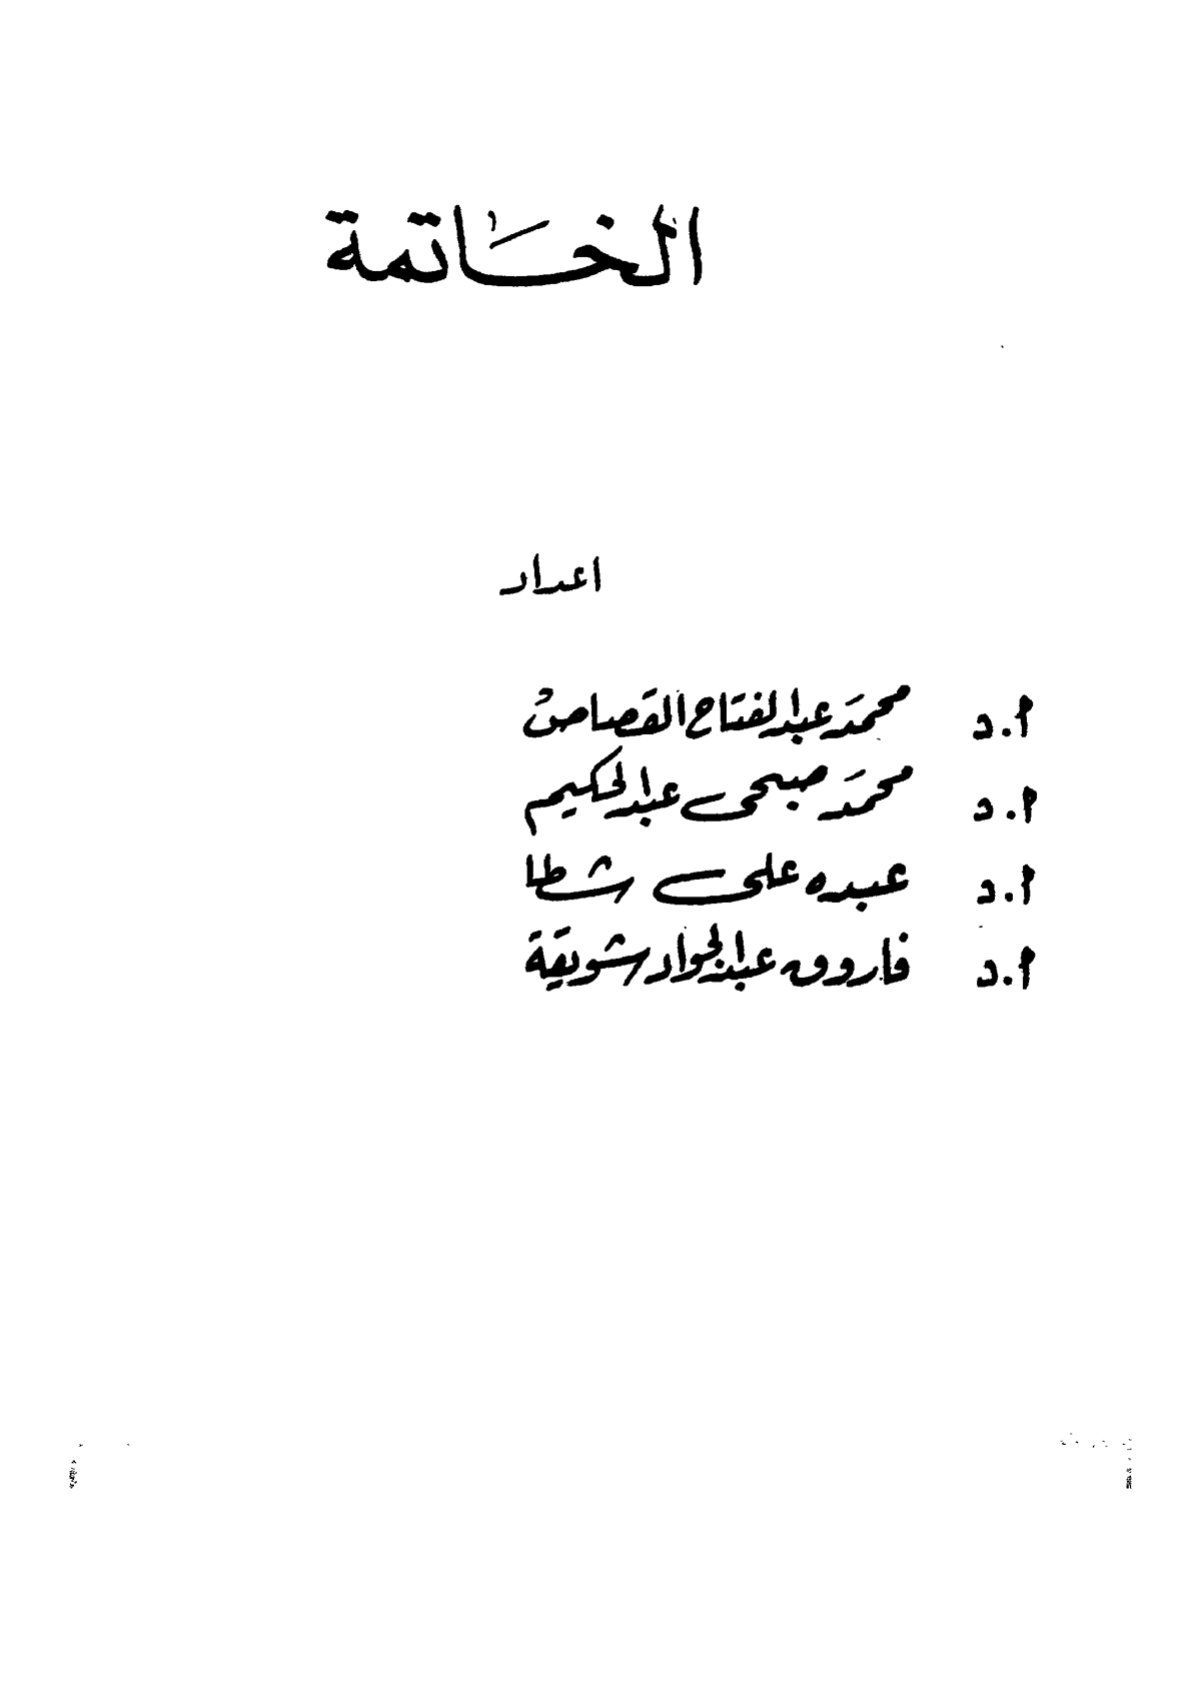 الخاتمة
اعداد
ا.د محمد عبد الفتاح القصاص
ا.د محمد صبحى عبد الحكيم
ا.د عبده على شطا
ا.د فاروق عبد الجواد شويقة